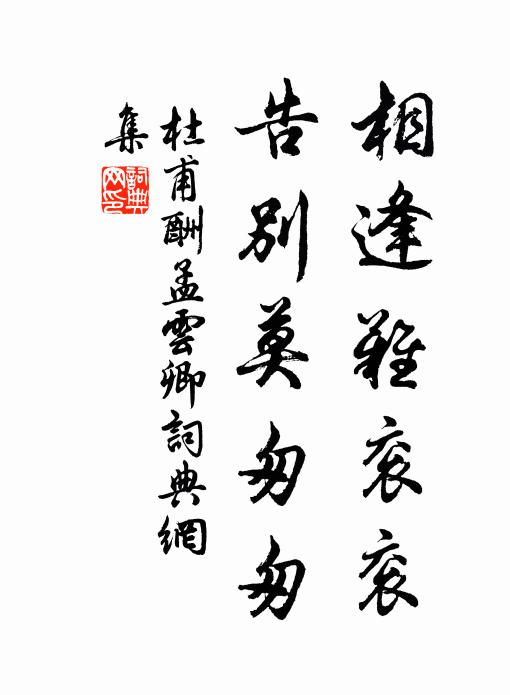 相逢難衮衮
告別莫匆匆
杜甫酬孟雲卿詞典網
集
詞典网印